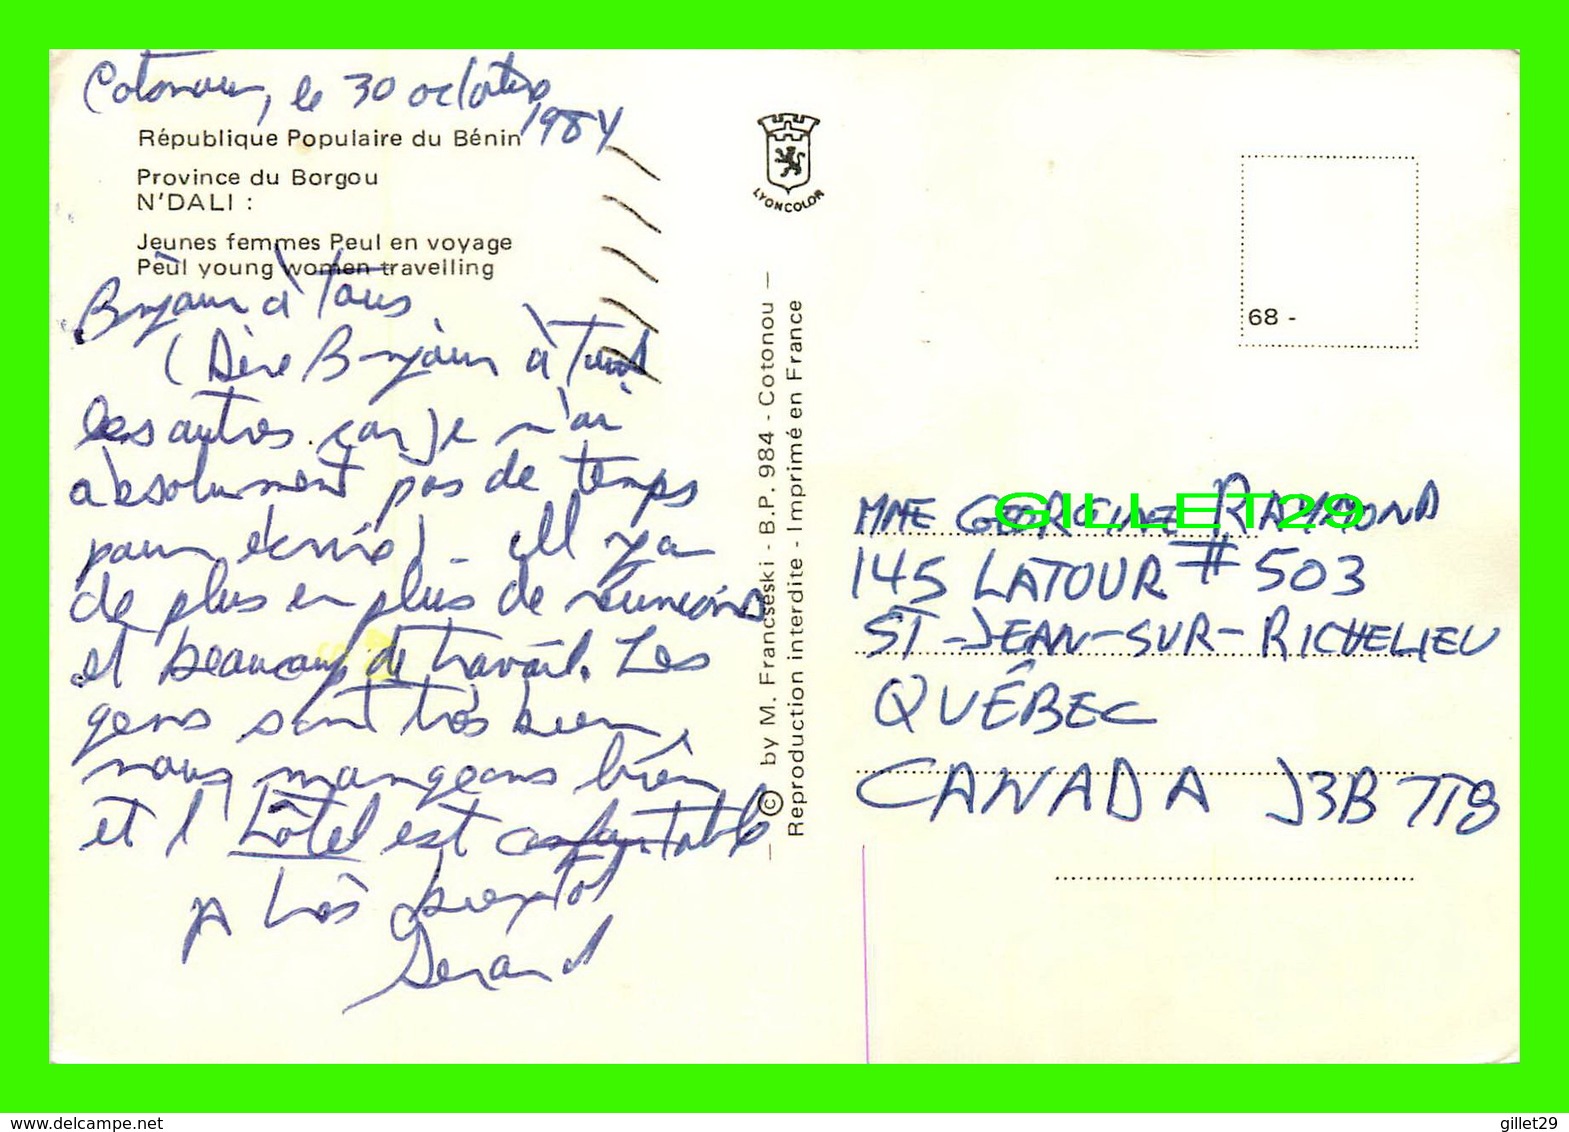 Cotonou, le 30 octobre
1984
République Populaire du Bénin
Province du Borgou
N'DALI :
Jeunes femmes Peul en voyage
Peul young women travelling
Bonjour à Tous
(Dire Bonjour à Tous
les autres car je n'ai
absolument pas de temps
pour écrire). Il y a
de plus en plus de réunions
et beaucoup de travail. Les
gens sont très bien,
nous mangeons bien
et l'hôtel est confortable
A très bientôt
Gérard
LYONCOLOR
© by M. Francseski - B.P. 984 - Cotonou —
Reproduction interdite - Imprimé en France
68 -
MME GEORGINE RAYMOND
145 LATOUR # 503
ST-JEAN-SUR-RICHELIEU
QUÉBEC
CANADA J3B 7T8
GILLET29
www.delcampe.net
gillet29